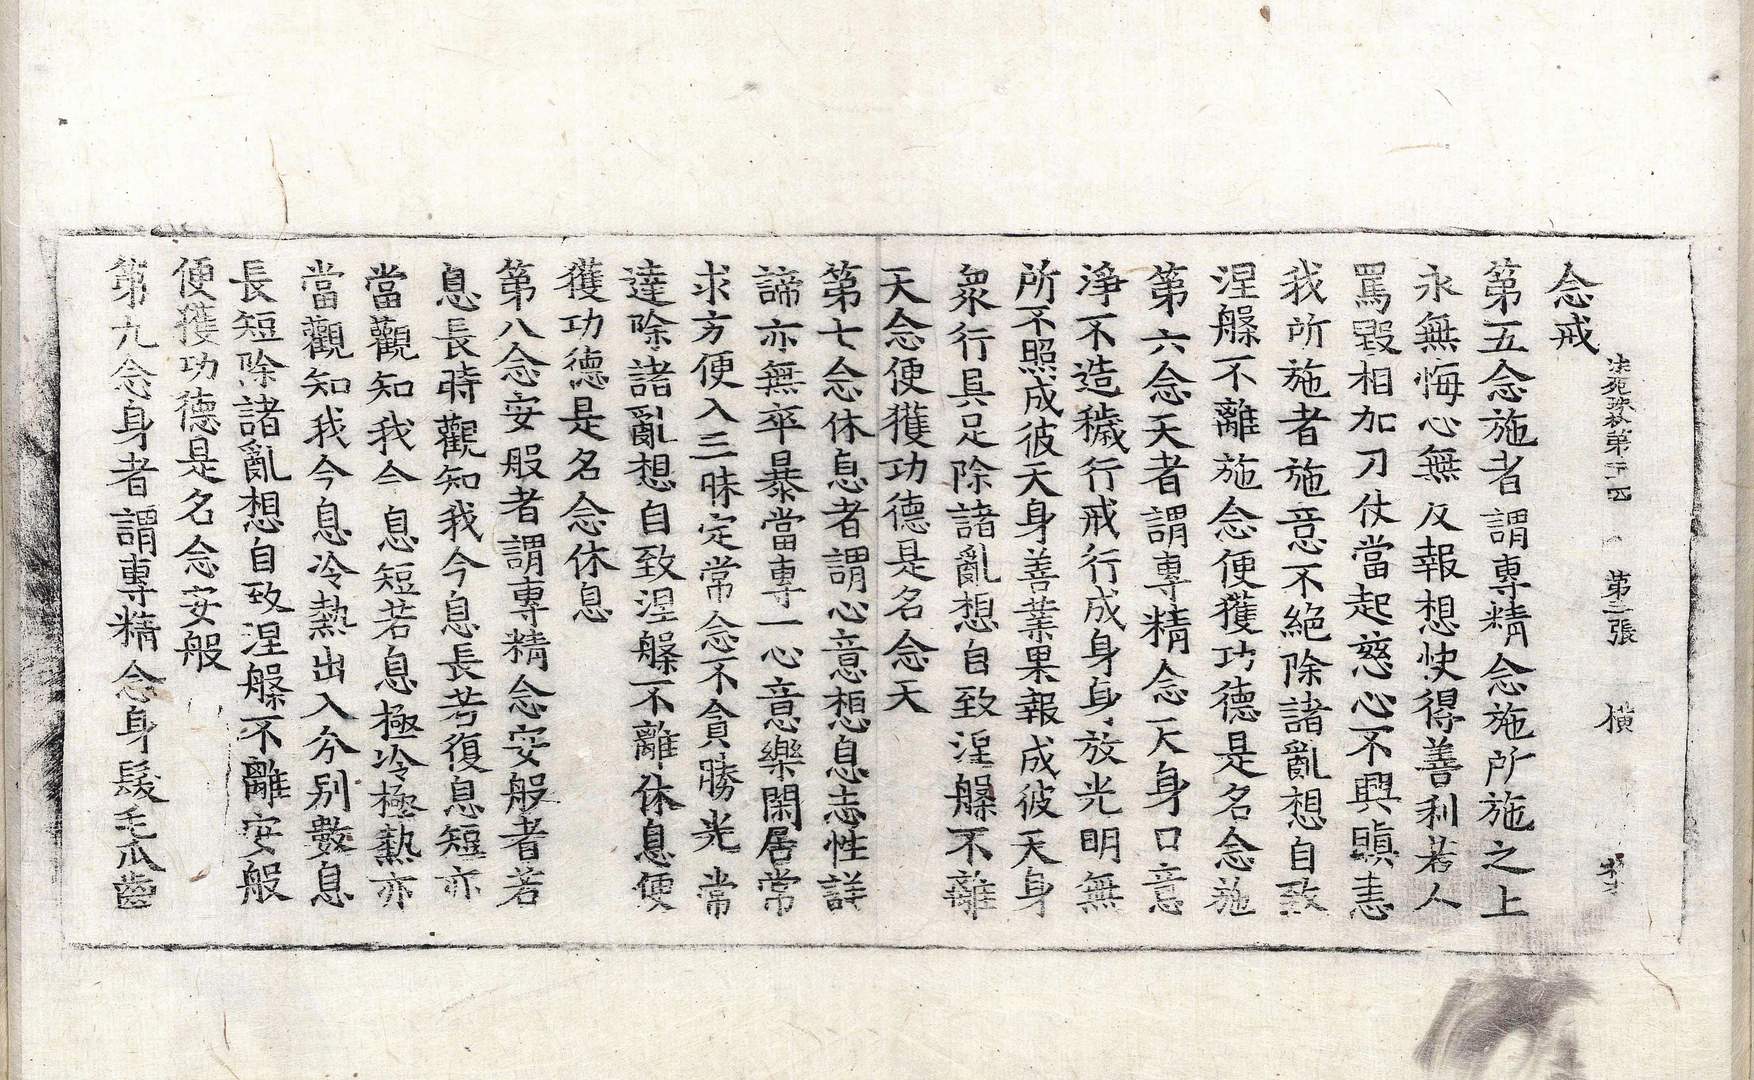 法苑珠林第三十四 第三張 橫
念戒
第五念施者謂專精念施所施之上
永無悔心無反報想快得善利若人
罵毀相加刀仗當起慈心不興瞋恚
我所施者施意不絕除諸亂想自致
涅槃不離施念便獲功德是名念施
第六念天者謂專精念天身口意
淨不造穢行戒行成身身放光明無
所不照成彼天身善業果報成彼天身
衆行具足除諸亂想自致涅槃不離
天念便獲功德是名念天
第七念休息者謂心意想息志性詳
諦亦無卒暴當專一心意樂閑居常
求方便入三昧定常念不貪勝光常
達除諸亂想自致涅槃不離休息便
獲功德是名念休息
第八念安般者謂專精念安般者若
息長時觀知我今息長若復息短亦
當觀知我今息短若息極冷極熱亦
當觀知我今息冷熱出入分別數息
長短除諸亂想自致涅槃不離安般
便獲功德是名念安般
第九念身者謂專精念身髮毛爪齒